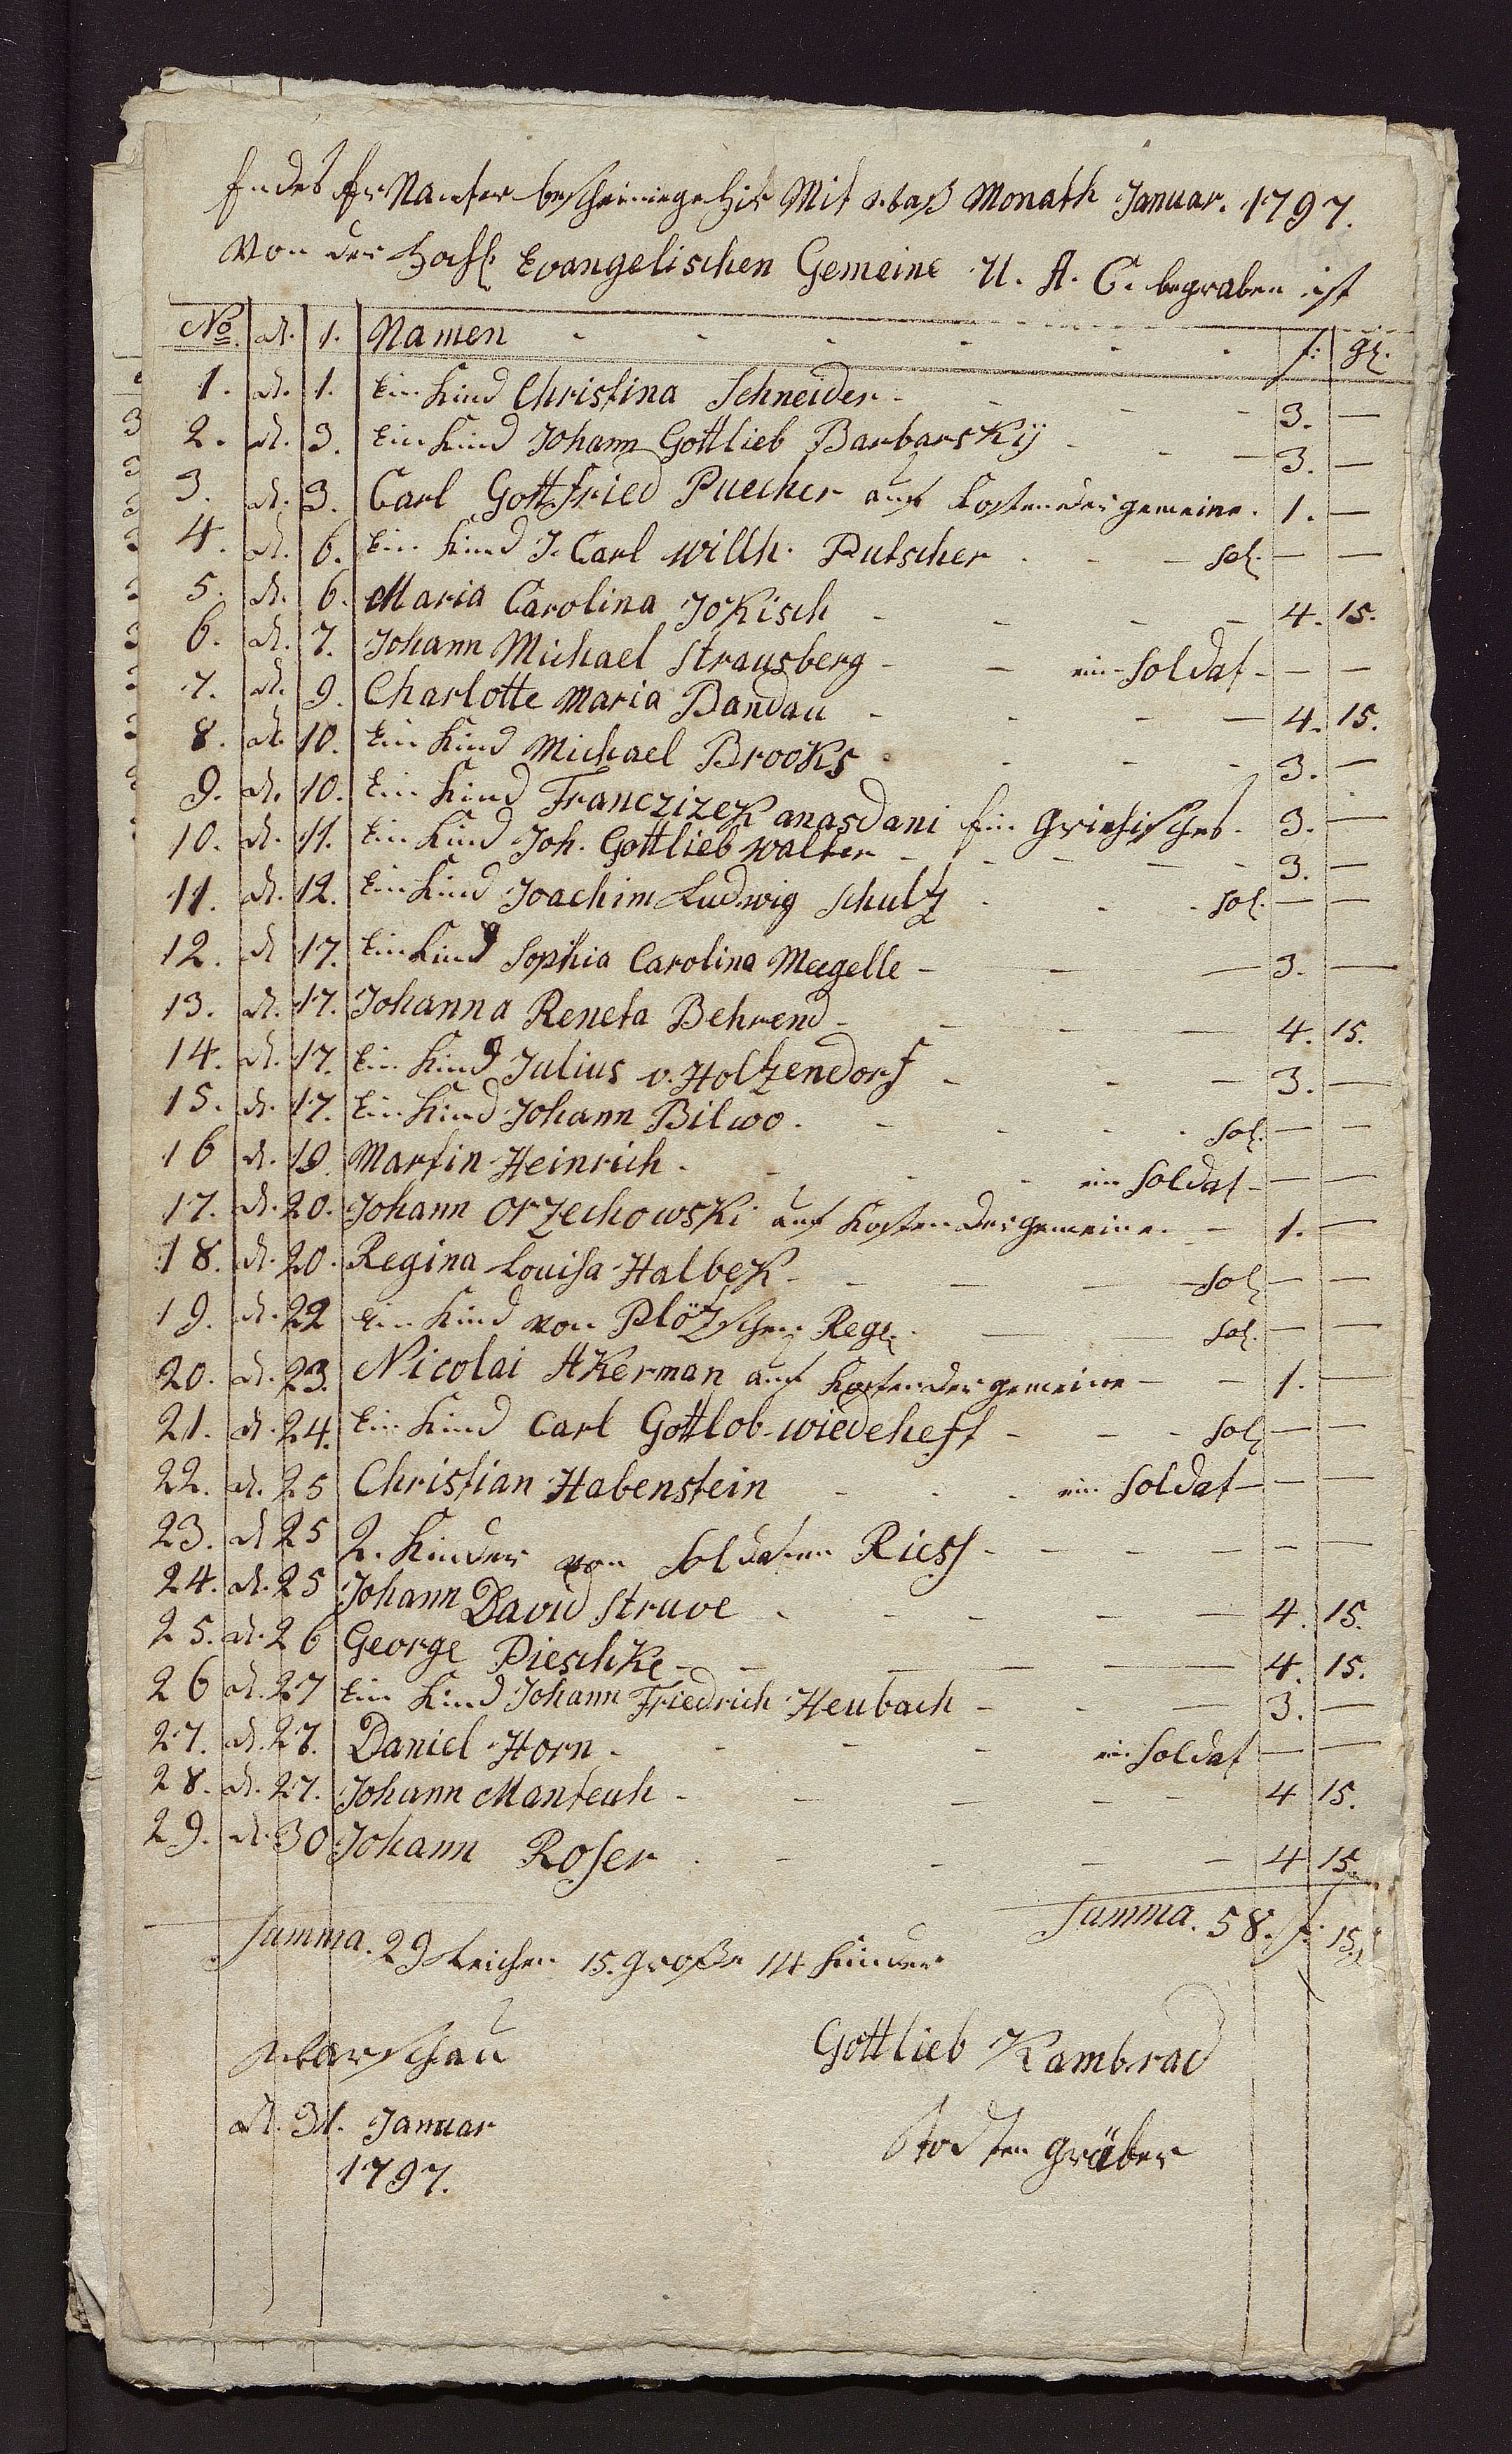 Endes Er Nanter bescheinige hir Mit was Monath Januar. 1797.
Von der hochl. Evangelischen Gemeine U. A. C. begraben ist
No. d. 1. Namen f: gl.
1. d. 1. Ein Kind Christina Schneider - 3. —
2. d. 3. Ein Kind Johann Gottlieb Barbarskÿ - 3. —
3. d. 3. Carl Gottfried Puecher auf Kosten der gemeine. 1. —
4. d. 6. Ein Kind J. Carl willh. Putscher - sol. — —
5. d. 6. Maria Carolina Jokisch - 4. 15.
6. d. 7. Johann Michael Strausberg - ein Soldat - — —
7. d. 9. Charlotte Maria Bandau - 4. 15.
8. d. 10. Ein Kind Michael Brooks - 3. —
9. d. 10. Ein Kind Franczizek anasdani Ein griechisches - 3. —
10. d. 11. Ein Kind Joh. Gottlieb walter - 3. —
11. d. 12. Ein Kind Joachim Ludwig Schultz - sol. — —
12. d 17. Ein Kind Sophia Carolina Meegelle - 3. —
13. d. 17. Johanna Reneta Behrend - 4. 15.
14. d. 17. Ein Kind Julius v. Holtzendorf - 3. —
15. d. 17. Ein Kind Johann Bilwo. - sol. — —
16 d. 19. Martin Heinrich. - ein Soldat - — —
17. d. 20. Johann Orzechowski auf Kosten der gemeine. - 1. —
18. d. 20. Regina Louisa Halbek - sol. — —
19. d. 22 Ein Kind von Plötzschen Reg. - sol. — —
20. d. 23. Nicolai Akerman auf Kosten der gemeine - 1. —
21. d. 24. Ein Kind Carl Gottlob wiedeheft - sol. — —
22. d. 25 Christian Habenstein - ein Soldat - — —
23. d 25 2. Kinder von Soldaten Riess - — —
24. d. 25 Johann David Struve - 4. 15.
25. d. 26 George Pieschke - 4. 15.
26 d. 27 Ein Kind Johann Friedrich Heubach - 3. —
27. d. 27. Daniel Horn. - ein Soldat — —
28. d. 27. Johann Manteuh - 4 15.
29. d. 30 Johann Roser - 4 15.
Summa. 58. f: 15.
Summa. 29 Leichen 15. große 14 Kinder
Warschau
d. 31. Januar
1797.
Gottlieb Kambrad
Todten gräber